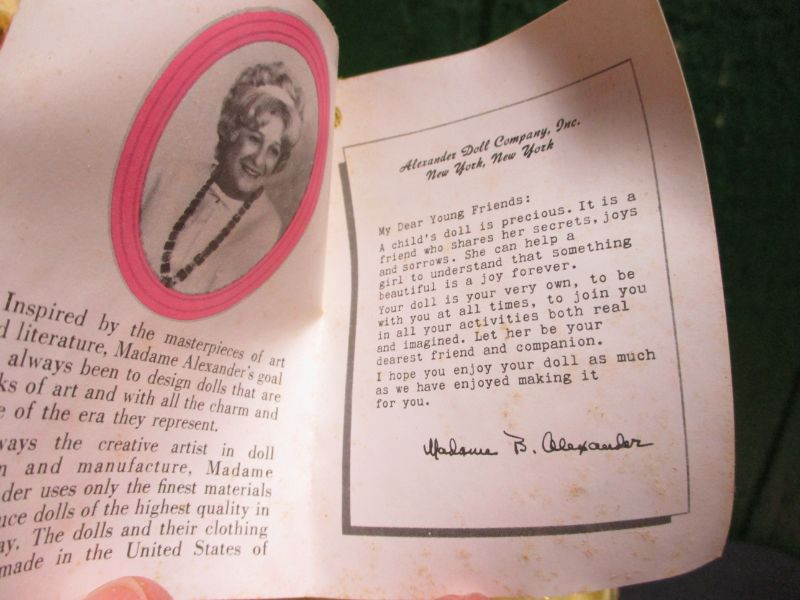 Inspired by the masterpieces of art
literature, Madame Alexander's goal
always been to design dolls that are
of art and with all the charm and
of the era they represent.
the creative artist in doll
and manufacture, Madame
uses only the finest materials
dolls of the highest quality in
The dolls and their clothing
made in the United States of
Alexander Doll Company, Inc.
New York, New York
My Dear Young Friends:
A child's doll is precious. It is a
friend who shares her secrets, joys
and sorrows. She can help a
girl to understand that something
beautiful is a joy forever.
Your doll is your very own, to be
with you at all times, to join you
in all your activities both real
and imagined. Let her be your
dearest friend and companion.
I hope you enjoy your doll as much
as we have enjoyed making it
for you.
Madame B. Alexander